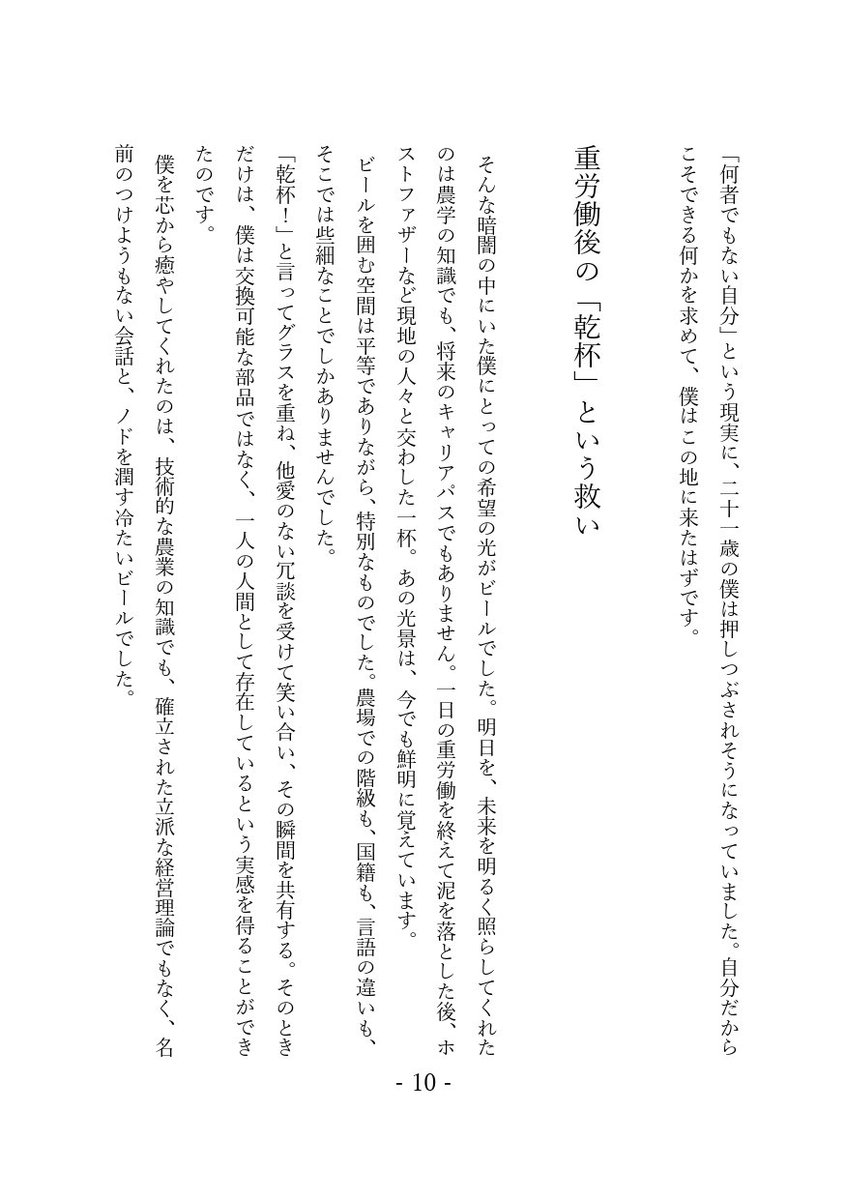 「何者でもない自分」という現実に、二十一歳の僕は押しつぶされそうになっていました。自分だから
こそできる何かを求めて、僕はこの地に来たはずです。
重労働後の「乾杯」という救い
そんな暗闇の中にいた僕にとっての希望の光がビールでした。明日を、未来を明るく照らしてくれた
のは農学の知識でも、将来のキャリアパスでもありません。一日の重労働を終えて泥を落とした後、ホ
ストファザーなど現地の人々と交わした一杯。あの光景は、今でも鮮明に覚えています。
ビールを囲む空間は平等でありながら、特別なものでした。農場での階級も、国籍も、言語の違いも、
そこでは些細なことでしかありませんでした。
「乾杯！」と言ってグラスを重ね、他愛のない冗談を受けて笑い合い、その瞬間を共有する。そのとき
だけは、僕は交換可能な部品ではなく、一人の人間として存在しているという実感を得ることができ
たのです。
僕を芯から癒やしてくれたのは、技術的な農業の知識でも、確立された立派な経営理論でもなく、名
前のつけようもない会話と、ノドを潤す冷たいビールでした。
- 10 -